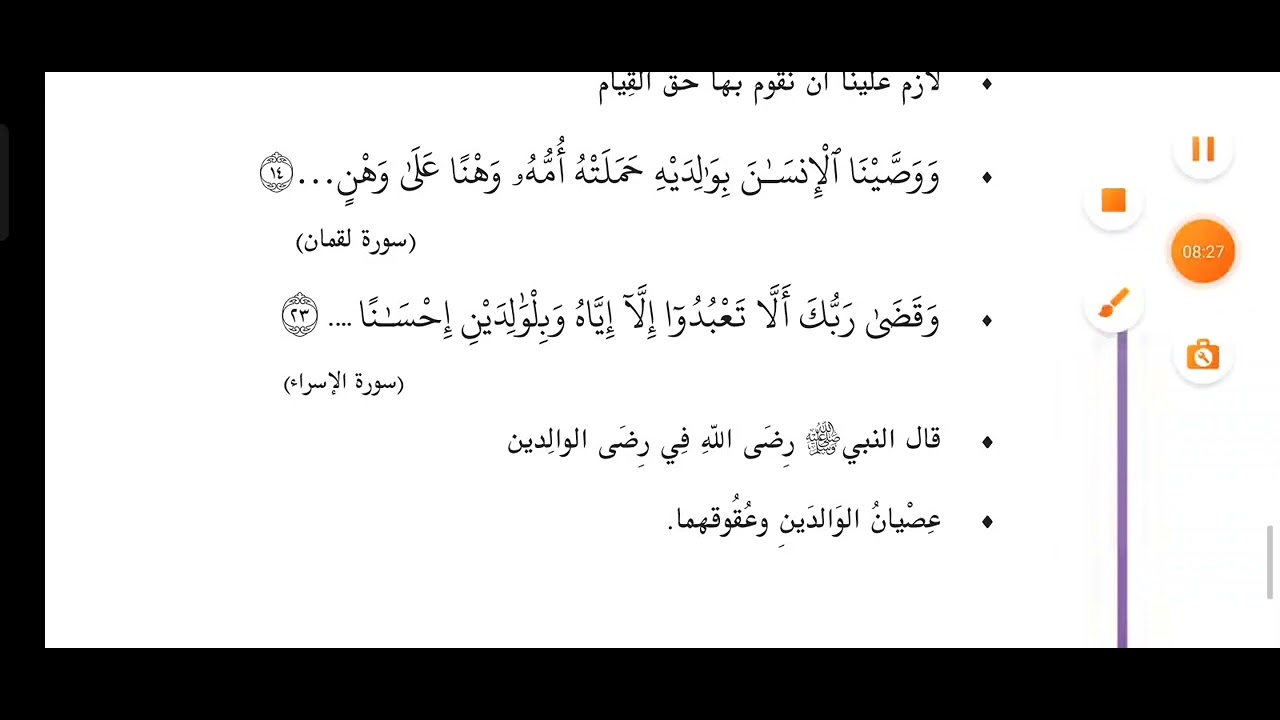 ♦ لازم علينا ان نقوم بها حق القِيام
♦ وَوَصَّيْنَا ٱلْإِنسَـٰنَ بِوَٰلِدَيْهِ حَمَلَتْهُ أُمُّهُۥ وَهْنًا عَلَىٰ وَهْنٍ... ١٤
(سورة لقمان)
♦ وَقَضَىٰ رَبُّكَ أَلَّا تَعْبُدُوٓا۟ إِلَّآ إِيَّاهُ وَبِٱلْوَٰلِدَيْنِ إِحْسَـٰنًا .... ٢٣
(سورة الإسراء)
♦ قال النبي ﷺ رِضَى اللّهِ فِي رِضَى الوالِدين
♦ عِصْيانُ الوَالدَينِ وعُقُوقهما.
08:27